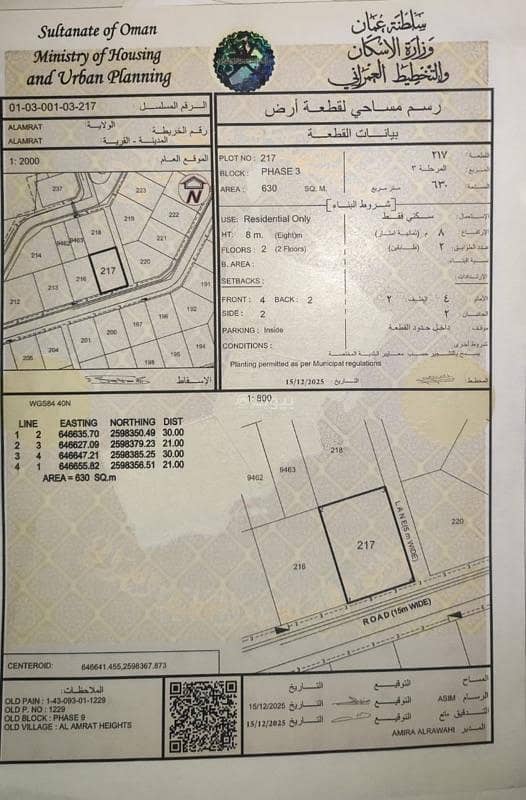 Sultanate of Oman
Ministry of Housing
and Urban Planning
سلطنة عمان
وزارة الإسكان
والتخطيط العمراني
01-03-001-03-217 الرقم المسلسل
ALAMRAT الولاية:
رقم الخريطة
ALAMRAT المدينة - القرية:
1: 2000 الموقع العام
رسم مساحي لقطعة أرض
بيانات القطعة
PLOT NO : 217 ٢١٧ القطعة
BLOCK : PHASE 3 المرحلة ٣ المربع
AREA : 630 SQ. M. متر مربع ٦٣٠ المساحة
شروط البناء
USE: Residential Only سكني فقط الإستعمال
HT: 8 m. (Eight)m ٨ م (ثمانية امتار) الإرتفاع
FLOORS 2 (2 Floors) ٢ (طابقين) عدد الطوابق
B. AREA : نسبة البناء
SETBACKS : الإرتدادات
FRONT : 4 BACK : 2 ٤ الخلف ٢ الأمام
SIDE : 2 ٢ الجانبان
PARKING : Inside داخل حدود القطعة موقف
CONDITIONS : شروط أخرى
يسمح بالتشجير حسب معايير البلدية المختصة
Planting permitted as per Municipal regulations
15/12/2025 التاريخ المخطط
237
223
222
221
219
218
9463
9462
214
217
220
213
216
212
215
201
200
199
198
191
203
204
205
197
196
195
194
192
الإسقاط
WGS84 40N
1: 800
LINE EASTING NORTHING DIST
1 2 646635.70 2598350.49 30.00
2 3 646627.09 2598379.23 21.00
3 4 646647.21 2598385.25 30.00
4 1 646655.82 2598356.51 21.00
AREA = 630 SQ.m
218
9463
9462
216
217
220
LANE(5m WIDE)
ROAD (15m WIDE)
CENTEROID: 646641.455,2598367.873
الملاحظات:
OLD PAIN : 1-43-093-01-1229
OLD P. NO : 1229
OLD BLOCK : PHASE 9
OLD VILLAGE : AL AMRAT HEIGHTS
التاريخ التوقيع المساح
15/12/2025 التاريخ التوقيع ASIM الرسام
15/12/2025 التاريخ التوقيع التدقيق
AMIRA ALRAWAHI المدير